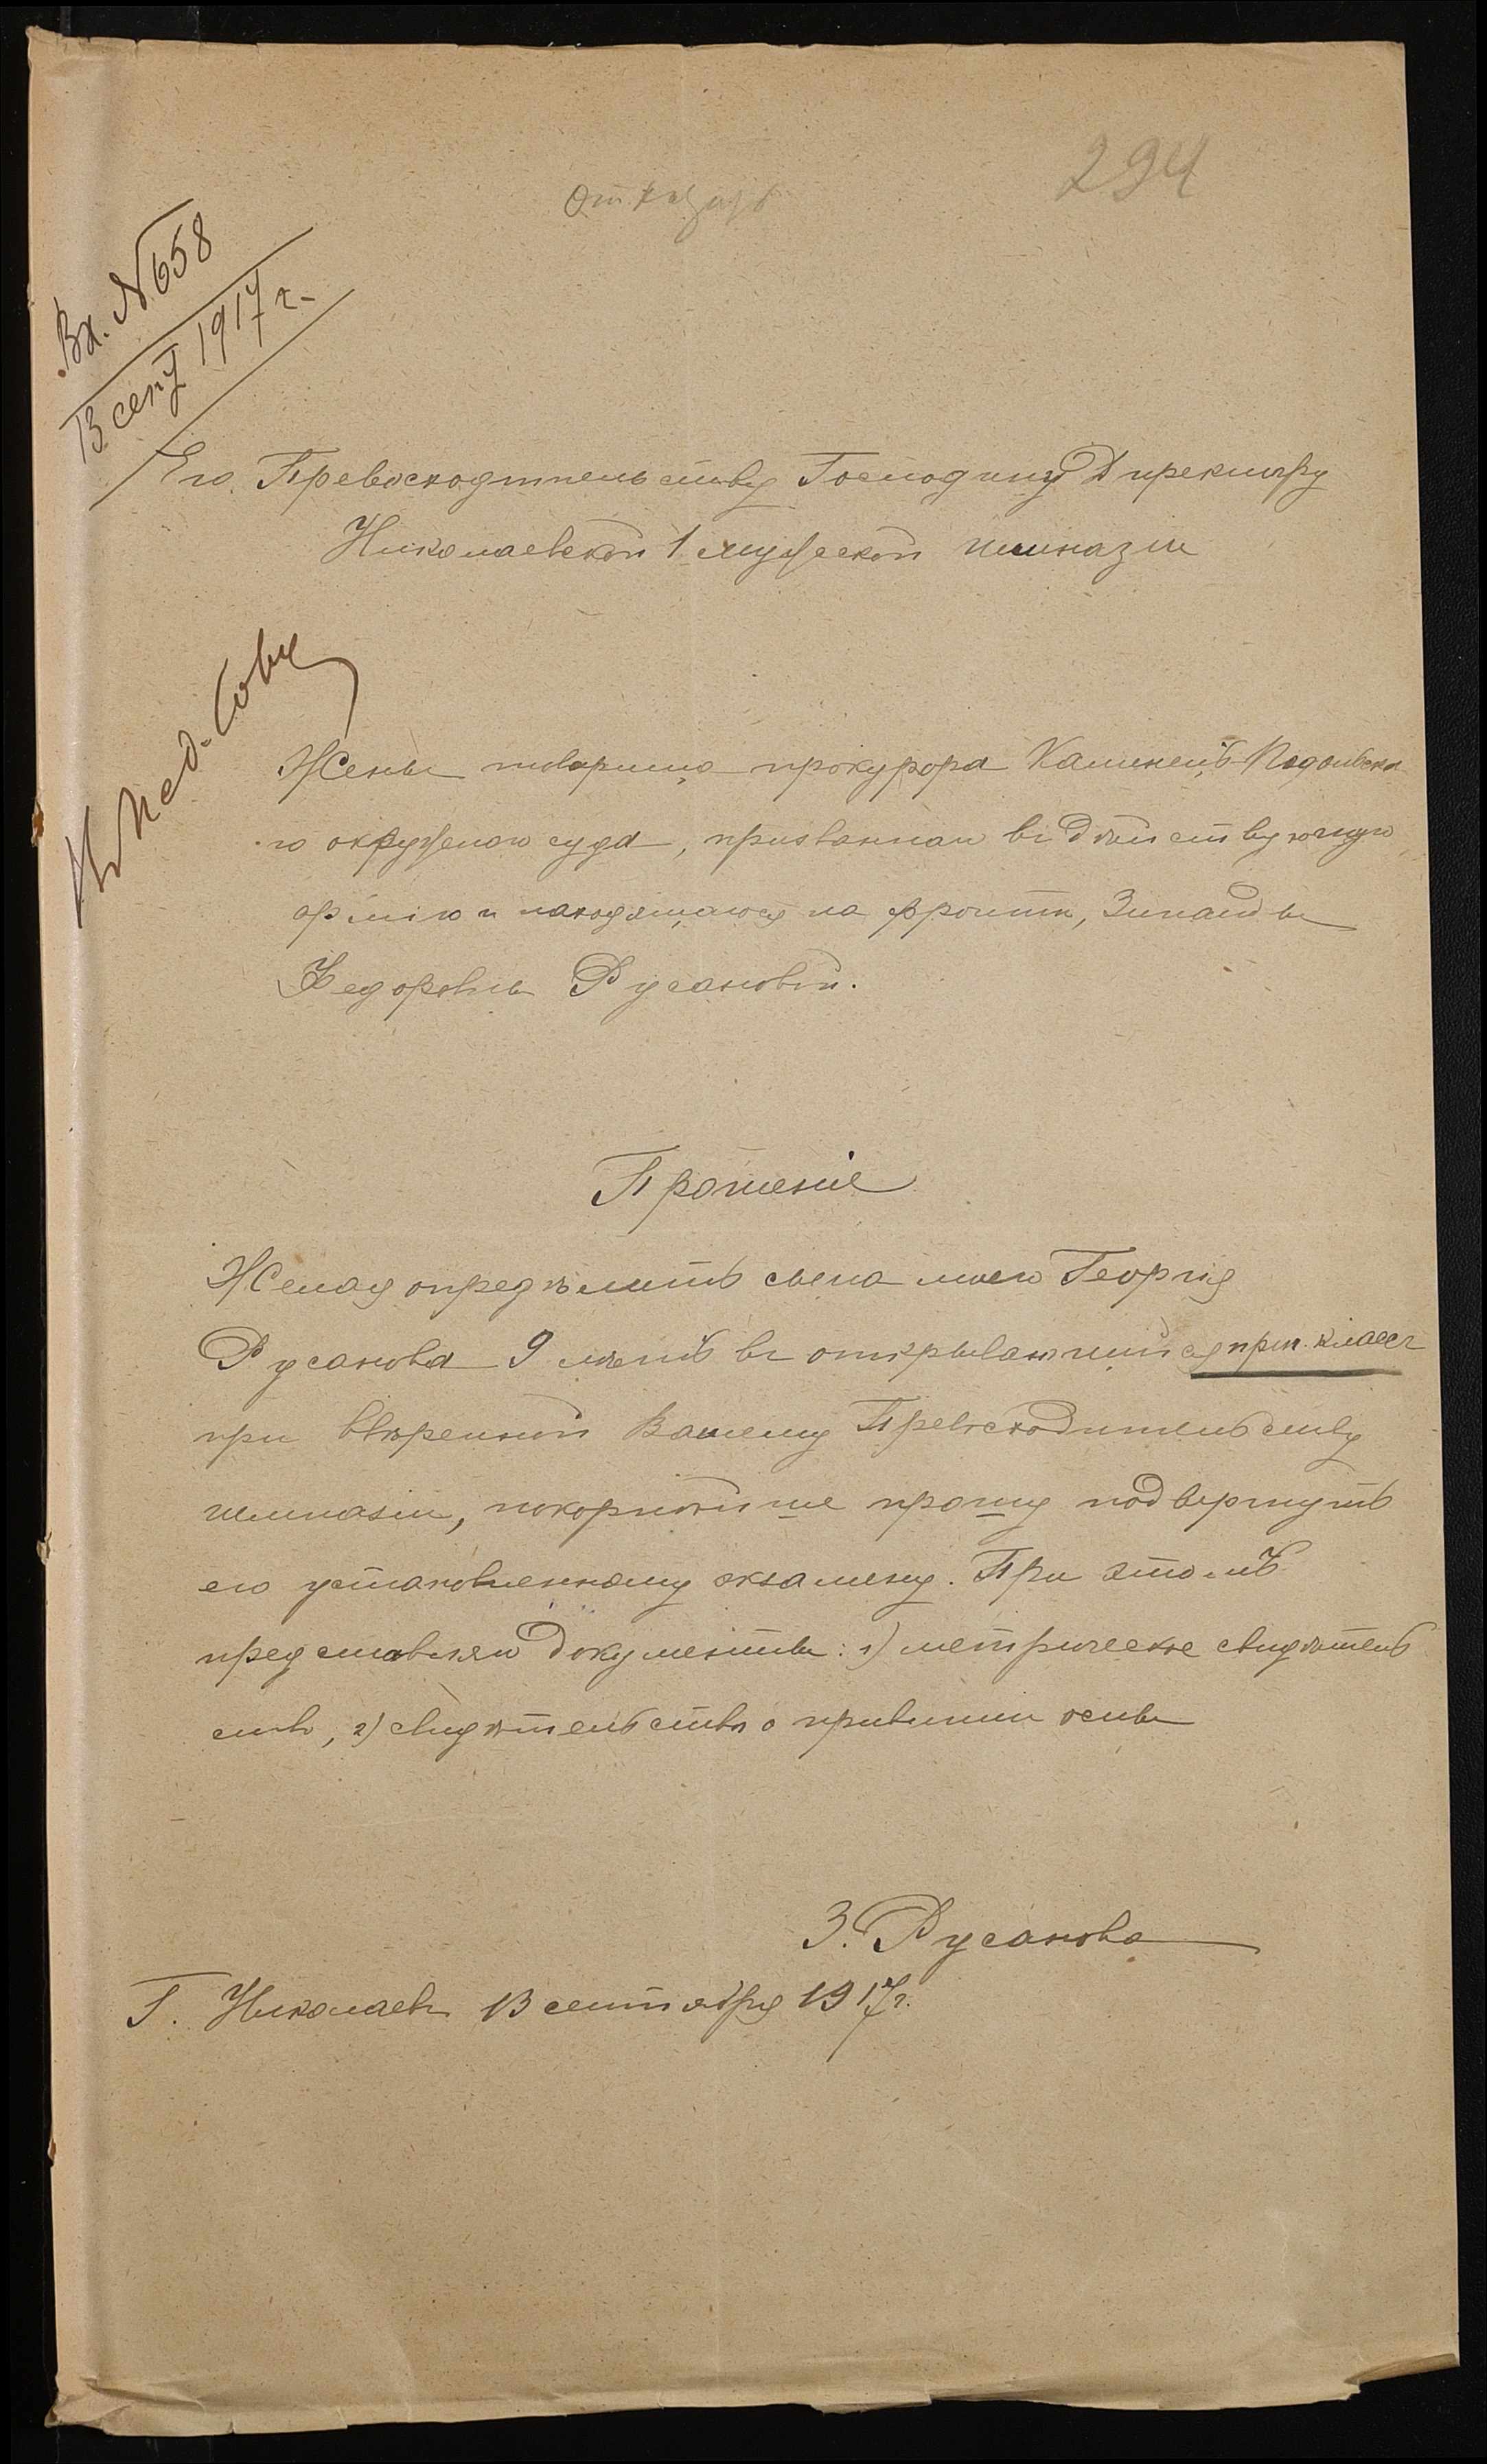 294
Отказать
Вх. № 658
13 сент 1917 г.
Его Превосходительству Господину Директору
Николаевской 1 мужской гимназии
Въ Пед. Сов.
Жены товарища прокурора Каменецъ-Подольска
го окружного суда, призваннаго въ действующую
армію и находящагося на фронтѣ, Зинаиды
Федоровны Русановой.
Прошеніе
Желая опредѣлить сына моего Георгія
Русанова 9 лѣтъ въ открывающійся приг. классъ
при ввѣренной Вашему Превосходительству
гимназіи, покорнѣйше прошу подвергнуть
его установленному экзамену. При этомъ
представляю документы: 1) метрическое свидѣтель
ство, 2) свидѣтельство о привитіи оспы
З. Русанова
Г. Николаевъ 13 сентября 1917 г.